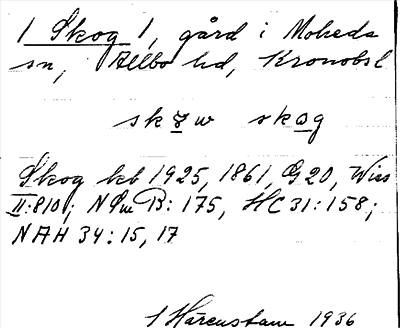 1 Skog 1, gård i Moheda
sn, Allbo hd, Kronobsl
skɤw skog
Skog kb 1925, 1861, G 20, Wies
II:810; NSm B: 175, HC 31:158;
NAH 34:15, 17
1 Härenstam 1936